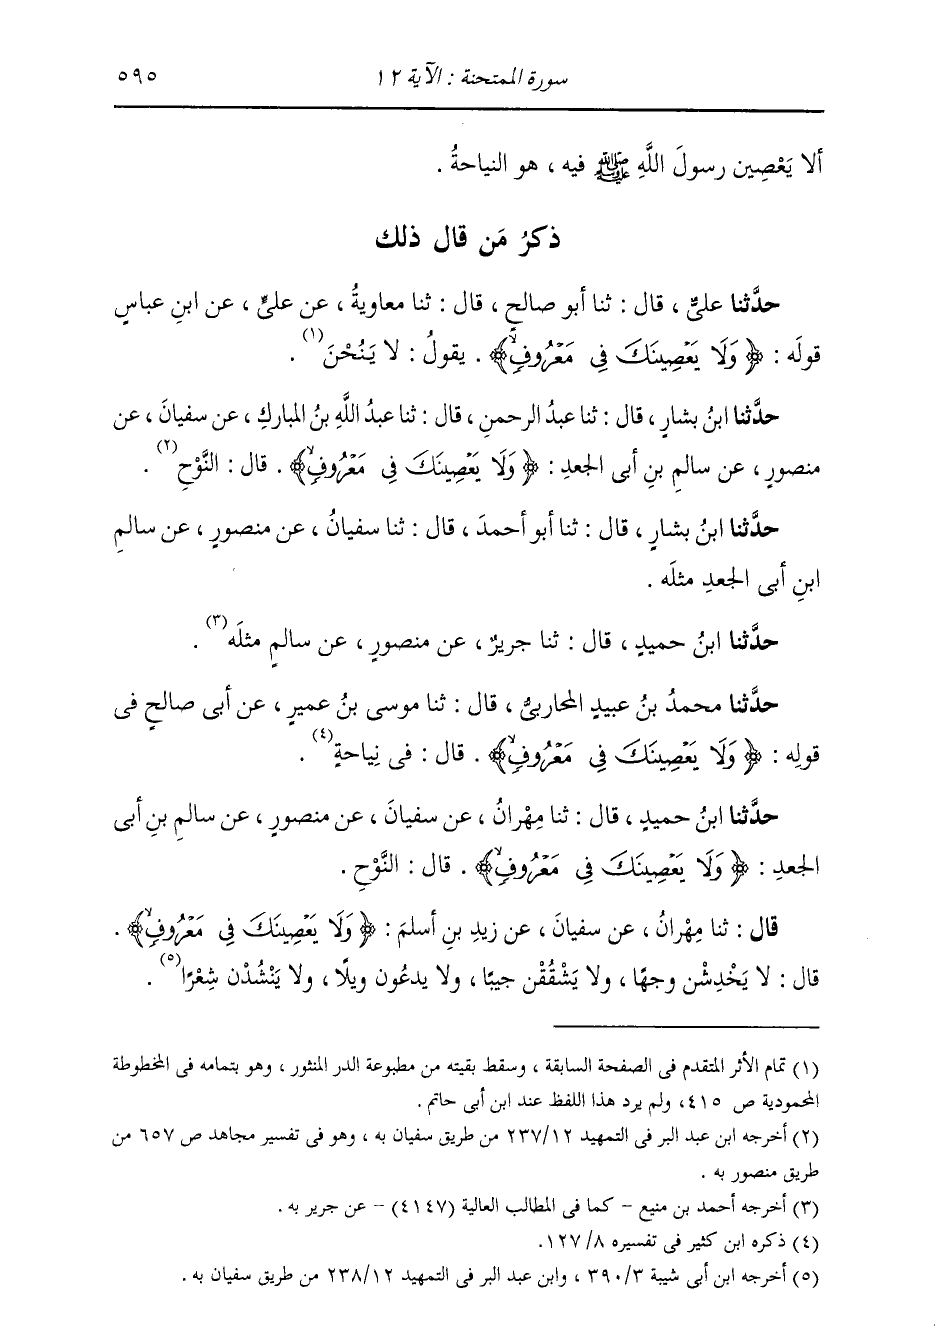 سورة الممتحنة : الآية ١٢ ٥٩٥
ألا يَعْصِين رسولَ اللَّهِ ﷺ فيه ، هو النياحةُ .
ذكرُ مَن قال ذلك
حدَّثنا علىٌّ ، قال : ثنا أبو صالحٍ ، قال : ثنا معاويةُ ، عن علىٍّ ، عن ابنِ عباسٍ
قولَه : ﴿ وَلَا يَعْصِينَكَ فِى مَعْرُوفٍ ﴾ . يقولُ : لا يَنُحْنَ (١) .
حدَّثنا ابنُ بشارٍ ، قال : ثنا عبدُ الرحمنِ ، قال : ثنا عبدُ اللَّهِ بنُ المباركِ ، عن سفيانَ ، عن
منصورٍ ، عن سالمِ بنِ أبى الجعدِ : ﴿ وَلَا يَعْصِينَكَ فِى مَعْرُوفٍ ﴾ . قال : النَّوْحِ (٢) .
حدَّثنا ابنُ بشارٍ ، قال : ثنا أبو أحمدَ ، قال : ثنا سفيانُ ، عن منصورٍ ، عن سالمِ
ابنِ أبى الجعدِ مثلَه .
حدَّثنا ابنُ حميدٍ ، قال : ثنا جريرٌ ، عن منصورٍ ، عن سالمٍ مثلَه (٣) .
حدَّثنا محمدُ بنُ عبيدٍ المحاربىُّ ، قال : ثنا موسى بنُ عميرٍ ، عن أبى صالحٍ فى
قولِه : ﴿ وَلَا يَعْصِينَكَ فِى مَعْرُوفٍ ﴾ . قال : فى نِياحةٍ (٤) .
حدَّثنا ابنُ حميدٍ ، قال : ثنا مِهْرانُ ، عن سفيانَ ، عن منصورٍ ، عن سالمِ بنِ أبى
الجعدِ : ﴿ وَلَا يَعْصِينَكَ فِى مَعْرُوفٍ ﴾ . قال : النَّوْحِ .
قال : ثنا مِهْرانُ ، عن سفيانَ ، عن زيدِ بنِ أسلمَ : ﴿ وَلَا يَعْصِينَكَ فِى مَعْرُوفٍ ﴾ .
قال : لا يَخْدِشْن وجهًا ، ولا يَشْقُقْن جيبًا ، ولا يدعُون ويلًا ، ولا يَنْشُدْن شِعْرًا (٥) .
(١) تمام الأثر المتقدم فى الصفحة السابقة ، وسقط بقيته من مطبوعة الدر المنثور ، وهو بتمامه فى المخطوطة
المحمودية ص ٤١٥ ، ولم يرد هذا اللفظ عند ابن أبى حاتم .
(٢) أخرجه ابن عبد البر فى التمهيد ٢٣٧/١٢ من طريق سفيان به ، وهو فى تفسير مجاهد ص ٦٥٧ من
طريق منصور به .
(٣) أخرجه أحمد بن منيع - كما فى المطالب العالية (٤١٤٧) - عن جرير به .
(٤) ذكره ابن كثير فى تفسيره ١٢٧/٨ .
(٥) أخرجه ابن أبى شيبة ٣٩٠/٣ ، وابن عبد البر فى التمهيد ٢٣٨/١٢ من طريق سفيان به .